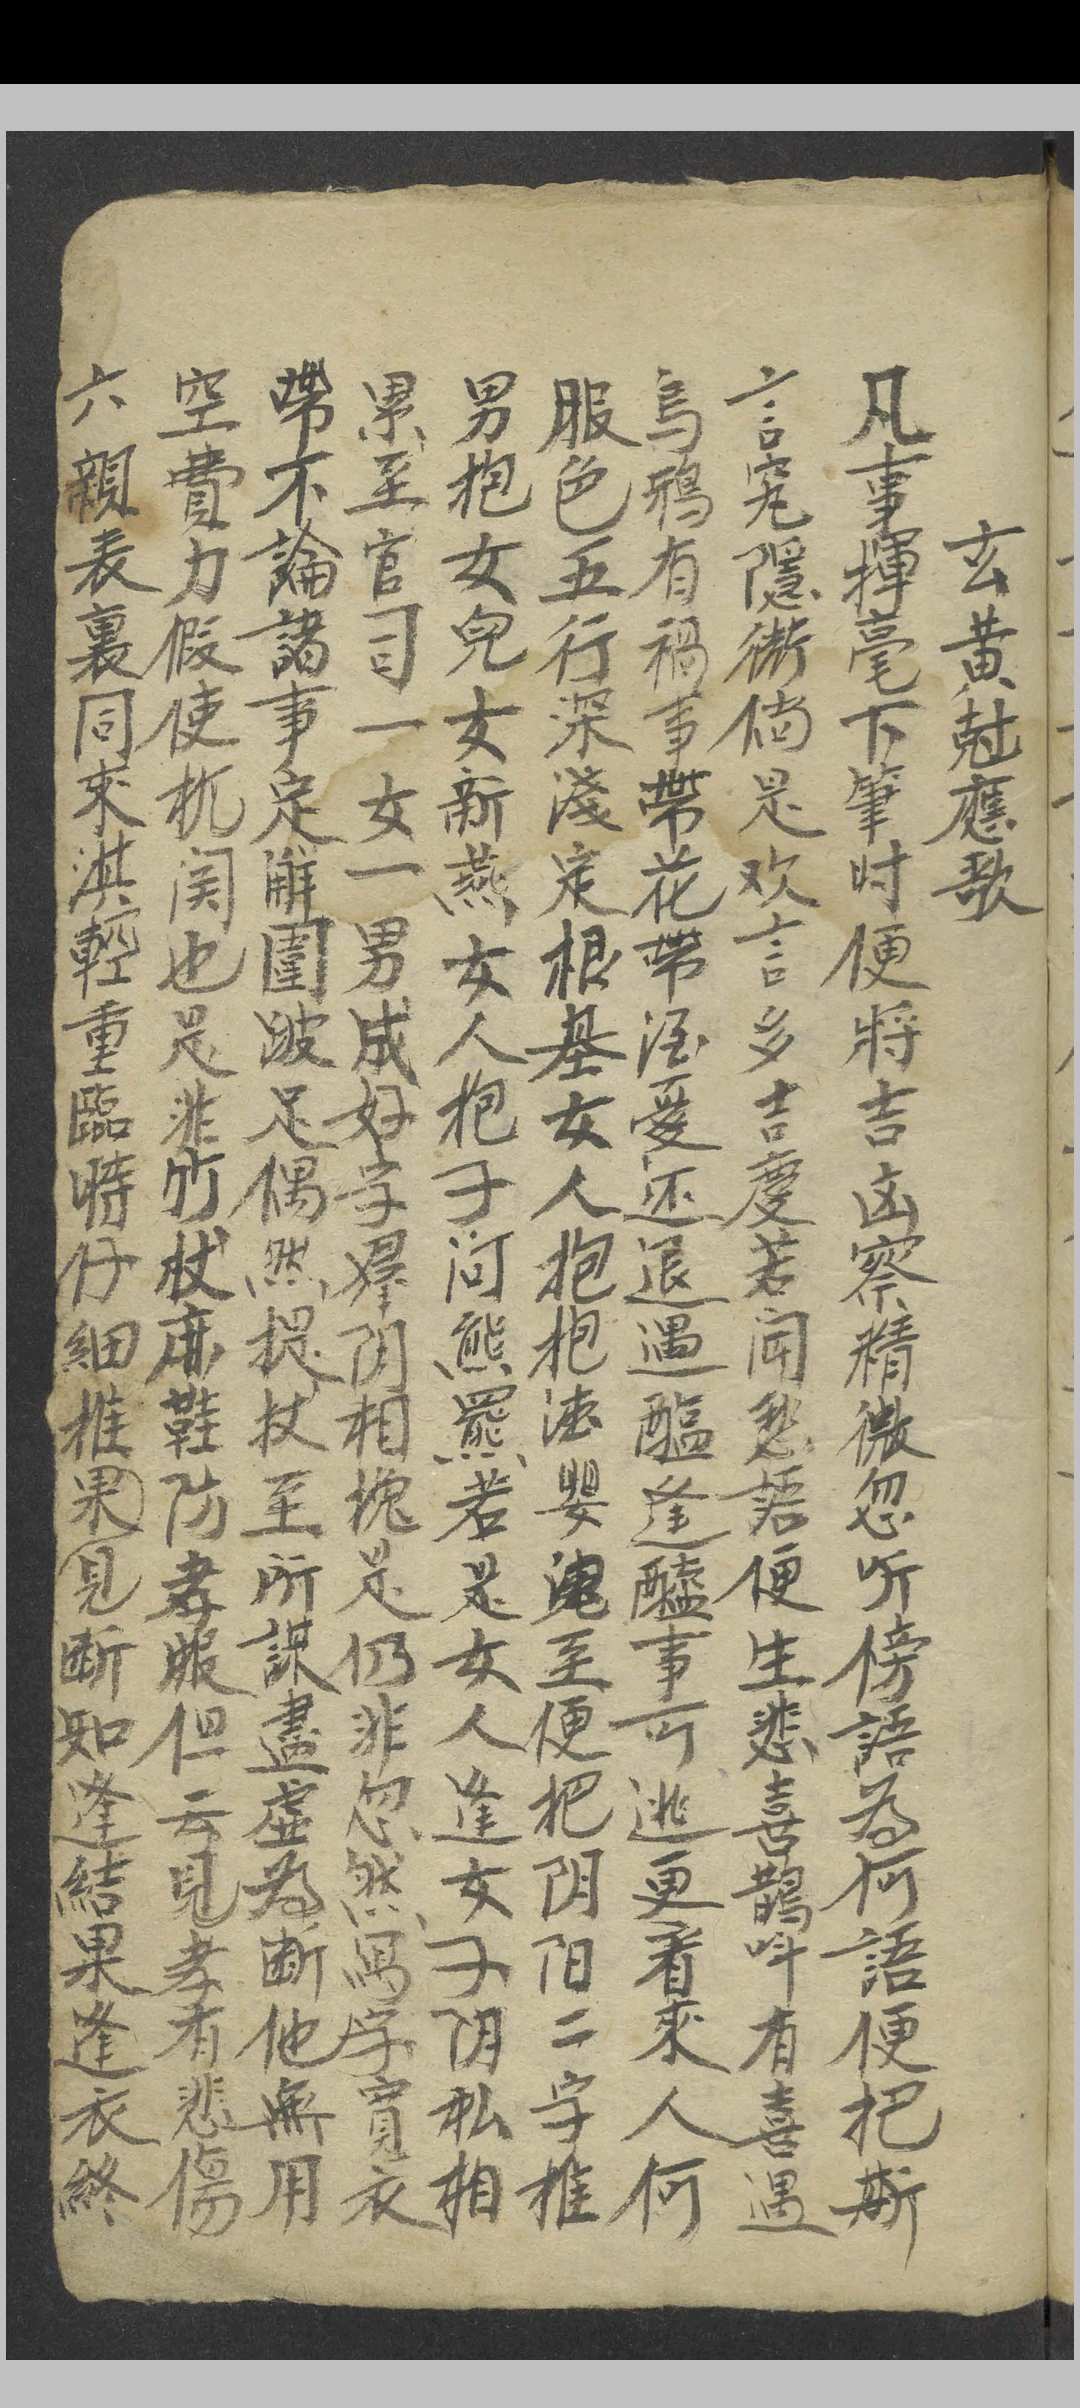 玄黄尅應歌
凡事揮毫下筆时便將吉凶察精微忽听傍語為何語便把斯
言究隱微倘是欢言多吉慶若闻愁語便生悲喜鵲呌有喜遇
烏鴉有禍事帶花帶酒憂还退遇醞逢醯事可逃更看來人何
服色五行深淺定根基女人抱抱嬰至便把阴阳二字推
男抱女兒女新燕女人抱子问熊羆若是女人逢女子阴私相
累至官司一女一男成好字阴相愧是仍非忽然寫字寬衣
帶不論諸事定解圍跛足偶然提杖至所謀盡虛為断他無用
空費力假使机関也是非竹杖麻鞋防孝服但云見孝有悲傷
六親表裏同來淇輕重臨時仔細推果見断如逢結果逢衣終